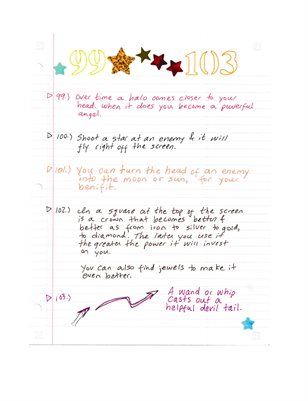 99 103
99.) Over time a halo comes closer to your
head. When it does you become a powerful
angel.
100.) Shoot a star at an enemy & it will
fly right off the screen.
101.) You can turn the head of an enemy
into the moon or sun, for your
benifit.
102.) In a square at the top of the screen
is a crown that becomes better &
better as from iron to silver to gold,
to diamond. The later you use it
the greater the power it will invest
on you.
You can also find jewels to make it
even better.
103.) A wand or whip
casts out a
helpful devil tail.